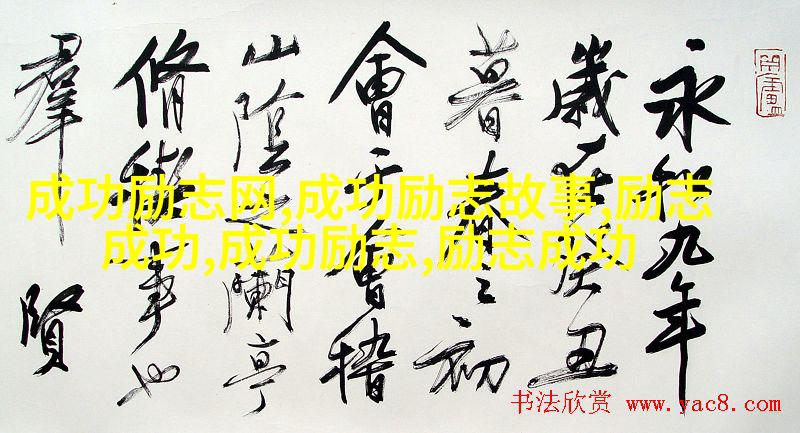 永和九年
歲在癸丑
暮春之初
會于會稽
山陰之蘭亭
脩禊事也
羣賢
成功励志网,成功励志故事,励志
成功,成功励志,励志成功
书法欣赏 www.yac8.com